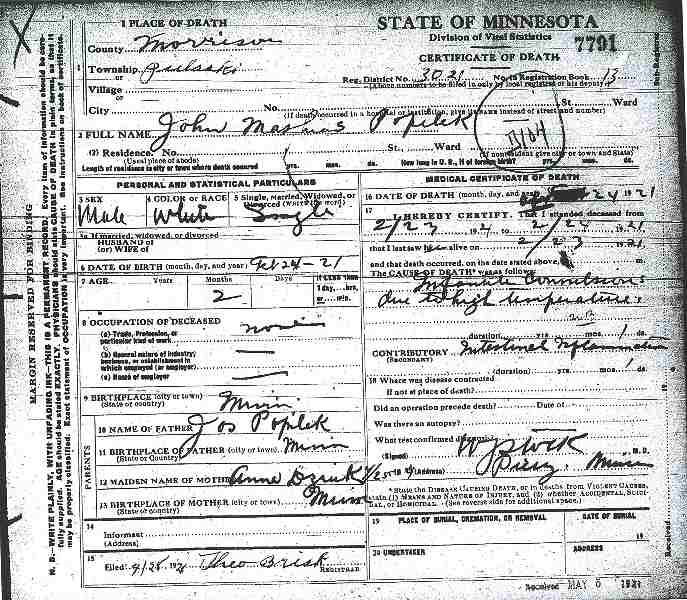 STATE OF MINNESOTA
Division of Vital Statistics
7791
CERTIFICATE OF DEATH
1 PLACE OF DEATH
County Morrison
Township Pulaski
Village
City
or
or
Reg. District No. 3021 No. in Registration Book 13
(Above numbers to be filled in only by local registrar or his deputy)
No. St. Ward
(If death occurred in a hospital or institution, give its name instead of street and number)
2 FULL NAME John Poplek
(2) Residence. No. St. Ward
(Usual place of abode) (If nonresident give city or town and State)
Length of residence in city or town where death occurred yrs. mos. ds. How long in U. S., if of foreign birth? yrs. mos. ds.
PERSONAL AND STATISTICAL PARTICULARS
3 SEX
Male
4 COLOR OR RACE
White
5 Single, Married, Widowed, or Divorced (Write the word)
Single
5a If married, widowed, or divorced
HUSBAND of
(or) WIFE of
6 DATE OF BIRTH (month, day, and year) Feb 24-21
7 AGE Years Months Days If LESS than
1 day, hrs.
or min.
2
8 OCCUPATION OF DECEASED none
(a) Trade, Profession, or
particular kind of work
(b) General nature of industry,
business, or establishment in
which employed (or employer)
(c) Name of employer
9 BIRTHPLACE (city or town) Minn
(State or country)
PARENTS
10 NAME OF FATHER Jos Poplek
11 BIRTHPLACE OF FATHER (city or town) Minn
(State or Country)
12 MAIDEN NAME OF MOTHER Anna
13 BIRTHPLACE OF MOTHER (city or town) Minn
(State or country)
14
Informant
(Address)
15
Filed 4/25 1921 Theo Brisk
REGISTRAR
MEDICAL CERTIFICATE OF DEATH
16 DATE OF DEATH (month, day, and year) 24 1921
17
I HEREBY CERTIFY, That I attended deceased from
2/23 1921 to 2/24 1921
that I last saw alive on 2/23 1921
and that death occurred, on the date stated above, at m.
The CAUSE OF DEATH* was as follows:
Infantile Convulsions
due to high temperature
(duration) yrs. mos. 1 ds.
CONTRIBUTORY Intestinal Inflammation
(SECONDARY)
(duration) yrs. mos. 1 ds.
18 Where was disease contracted
if not at place of death?
Did an operation precede death? Date of
Was there an autopsy?
What test confirmed diagnosis?
(Signed) M. D.
(Address) Pierz Minn
* State the DISEASE CAUSING DEATH, or in deaths from VIOLENT CAUSES, state (1) MEANS AND NATURE OF INJURY, and (2) whether ACCIDENTAL, SUICIDAL, or HOMICIDAL. (See reverse side for additional space.)
19 PLACE OF BURIAL, CREMATION, OR REMOVAL DATE OF BURIAL
19
20 UNDERTAKER ADDRESS
Received MAY 5 1921
MARGIN RESERVED FOR BINDING
N. B.—WRITE PLAINLY, WITH UNFADING INK—THIS IS A PERMANENT RECORD. Every item of information should be carefully supplied. AGE should be stated EXACTLY. PHYSICIANS should state CAUSE OF DEATH in plain terms, so that it may be properly classified. Exact statement of OCCUPATION is very important. See instructions on back of certificate.
Sub-Registrar.
Received